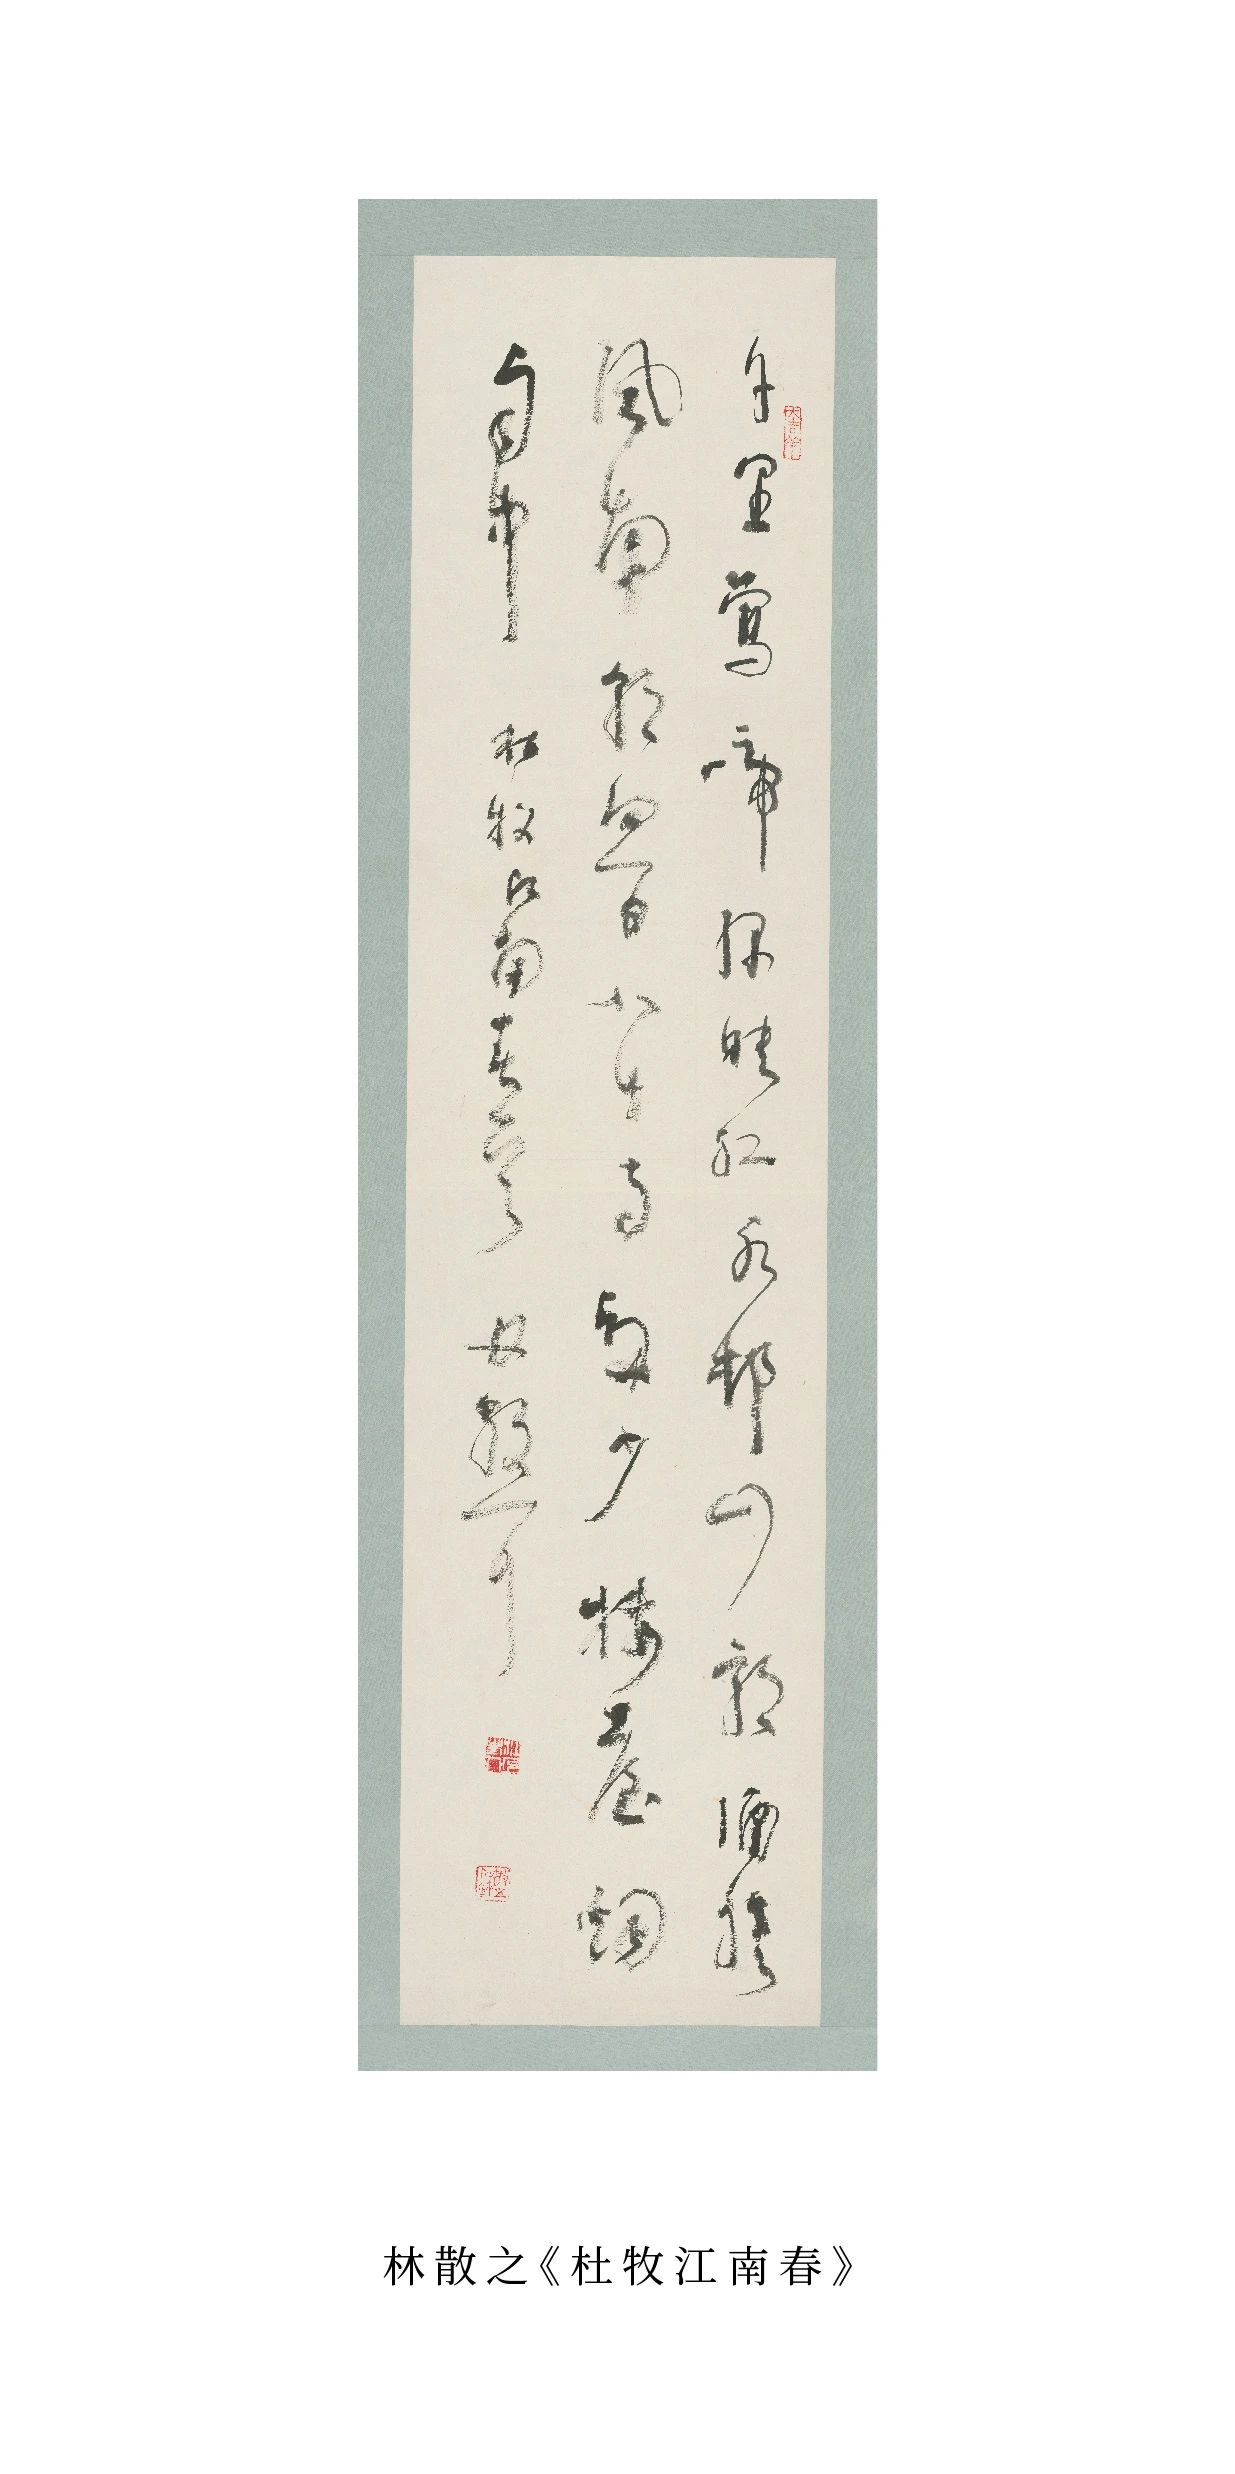 千里鶯啼綠映紅水邨山郭酒旗
風南朝四百八十寺多少樓臺烟
雨中 杜牧江南春 散耳
林散之《杜牧江南春》